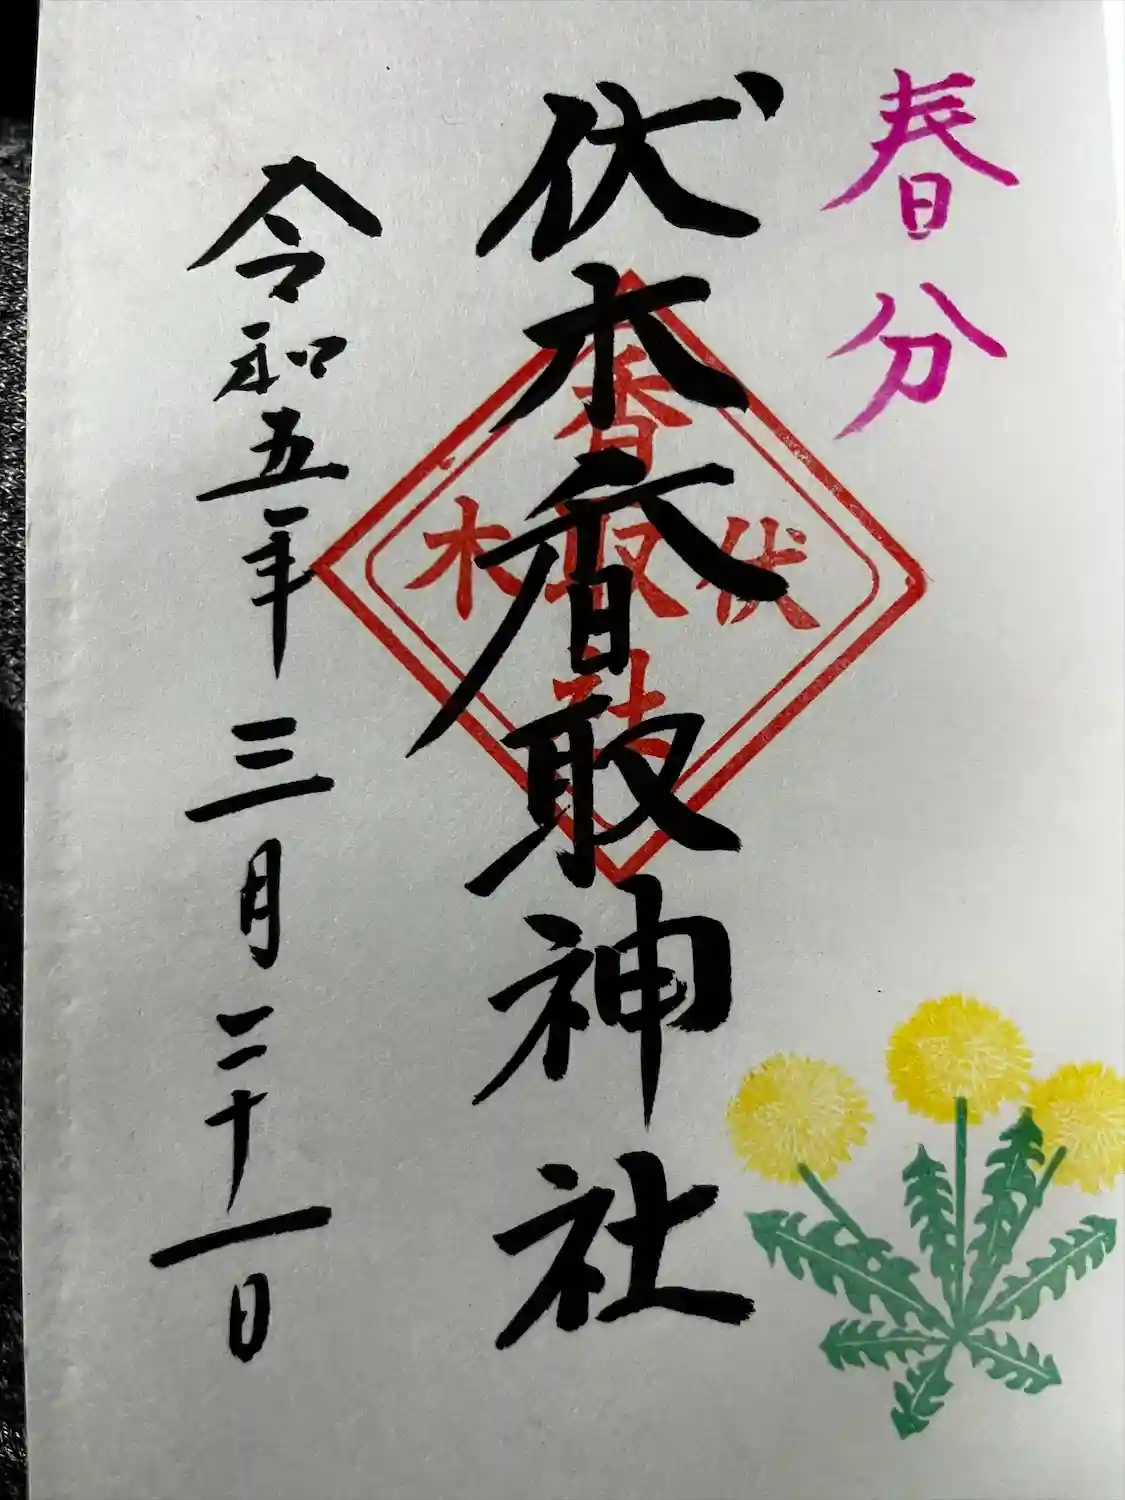 春分
伏木香取神社
香
伏取木
社
令和五年三月二十一日